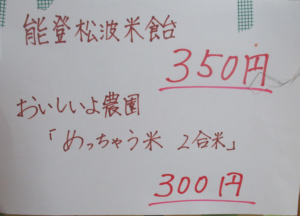 能登松波米飴
350円
おいしいよ農園
「めっちゃう米 2合米」
300円